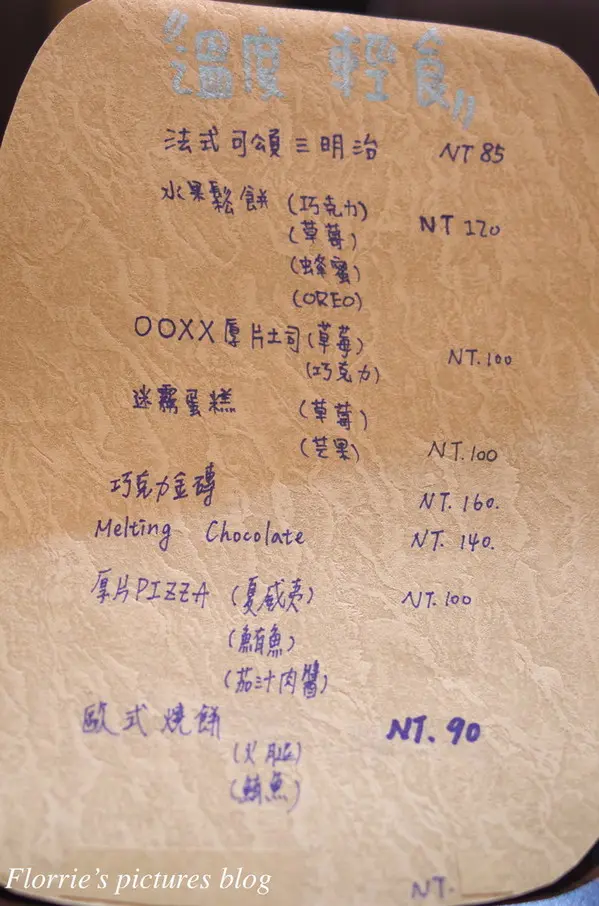 "溫度 輕食"
法式可頌三明治 NT 85
水果鬆餅 (巧克力) NT 120
(草莓)
(蜂蜜)
(OREO)
OOXX厚片土司(草莓)
(巧克力) NT.100
迷霧蛋糕 (草莓)
(芒果) NT.100
巧克力金磚 NT.160.
Melting Chocolate NT.140.
厚片PIZZA (夏威夷) NT.100
(鮪魚)
(茄汁肉醬)
歐式燒餅 NT.90
(火腿)
(鮪魚)
NT.
Florrie's pictures blog